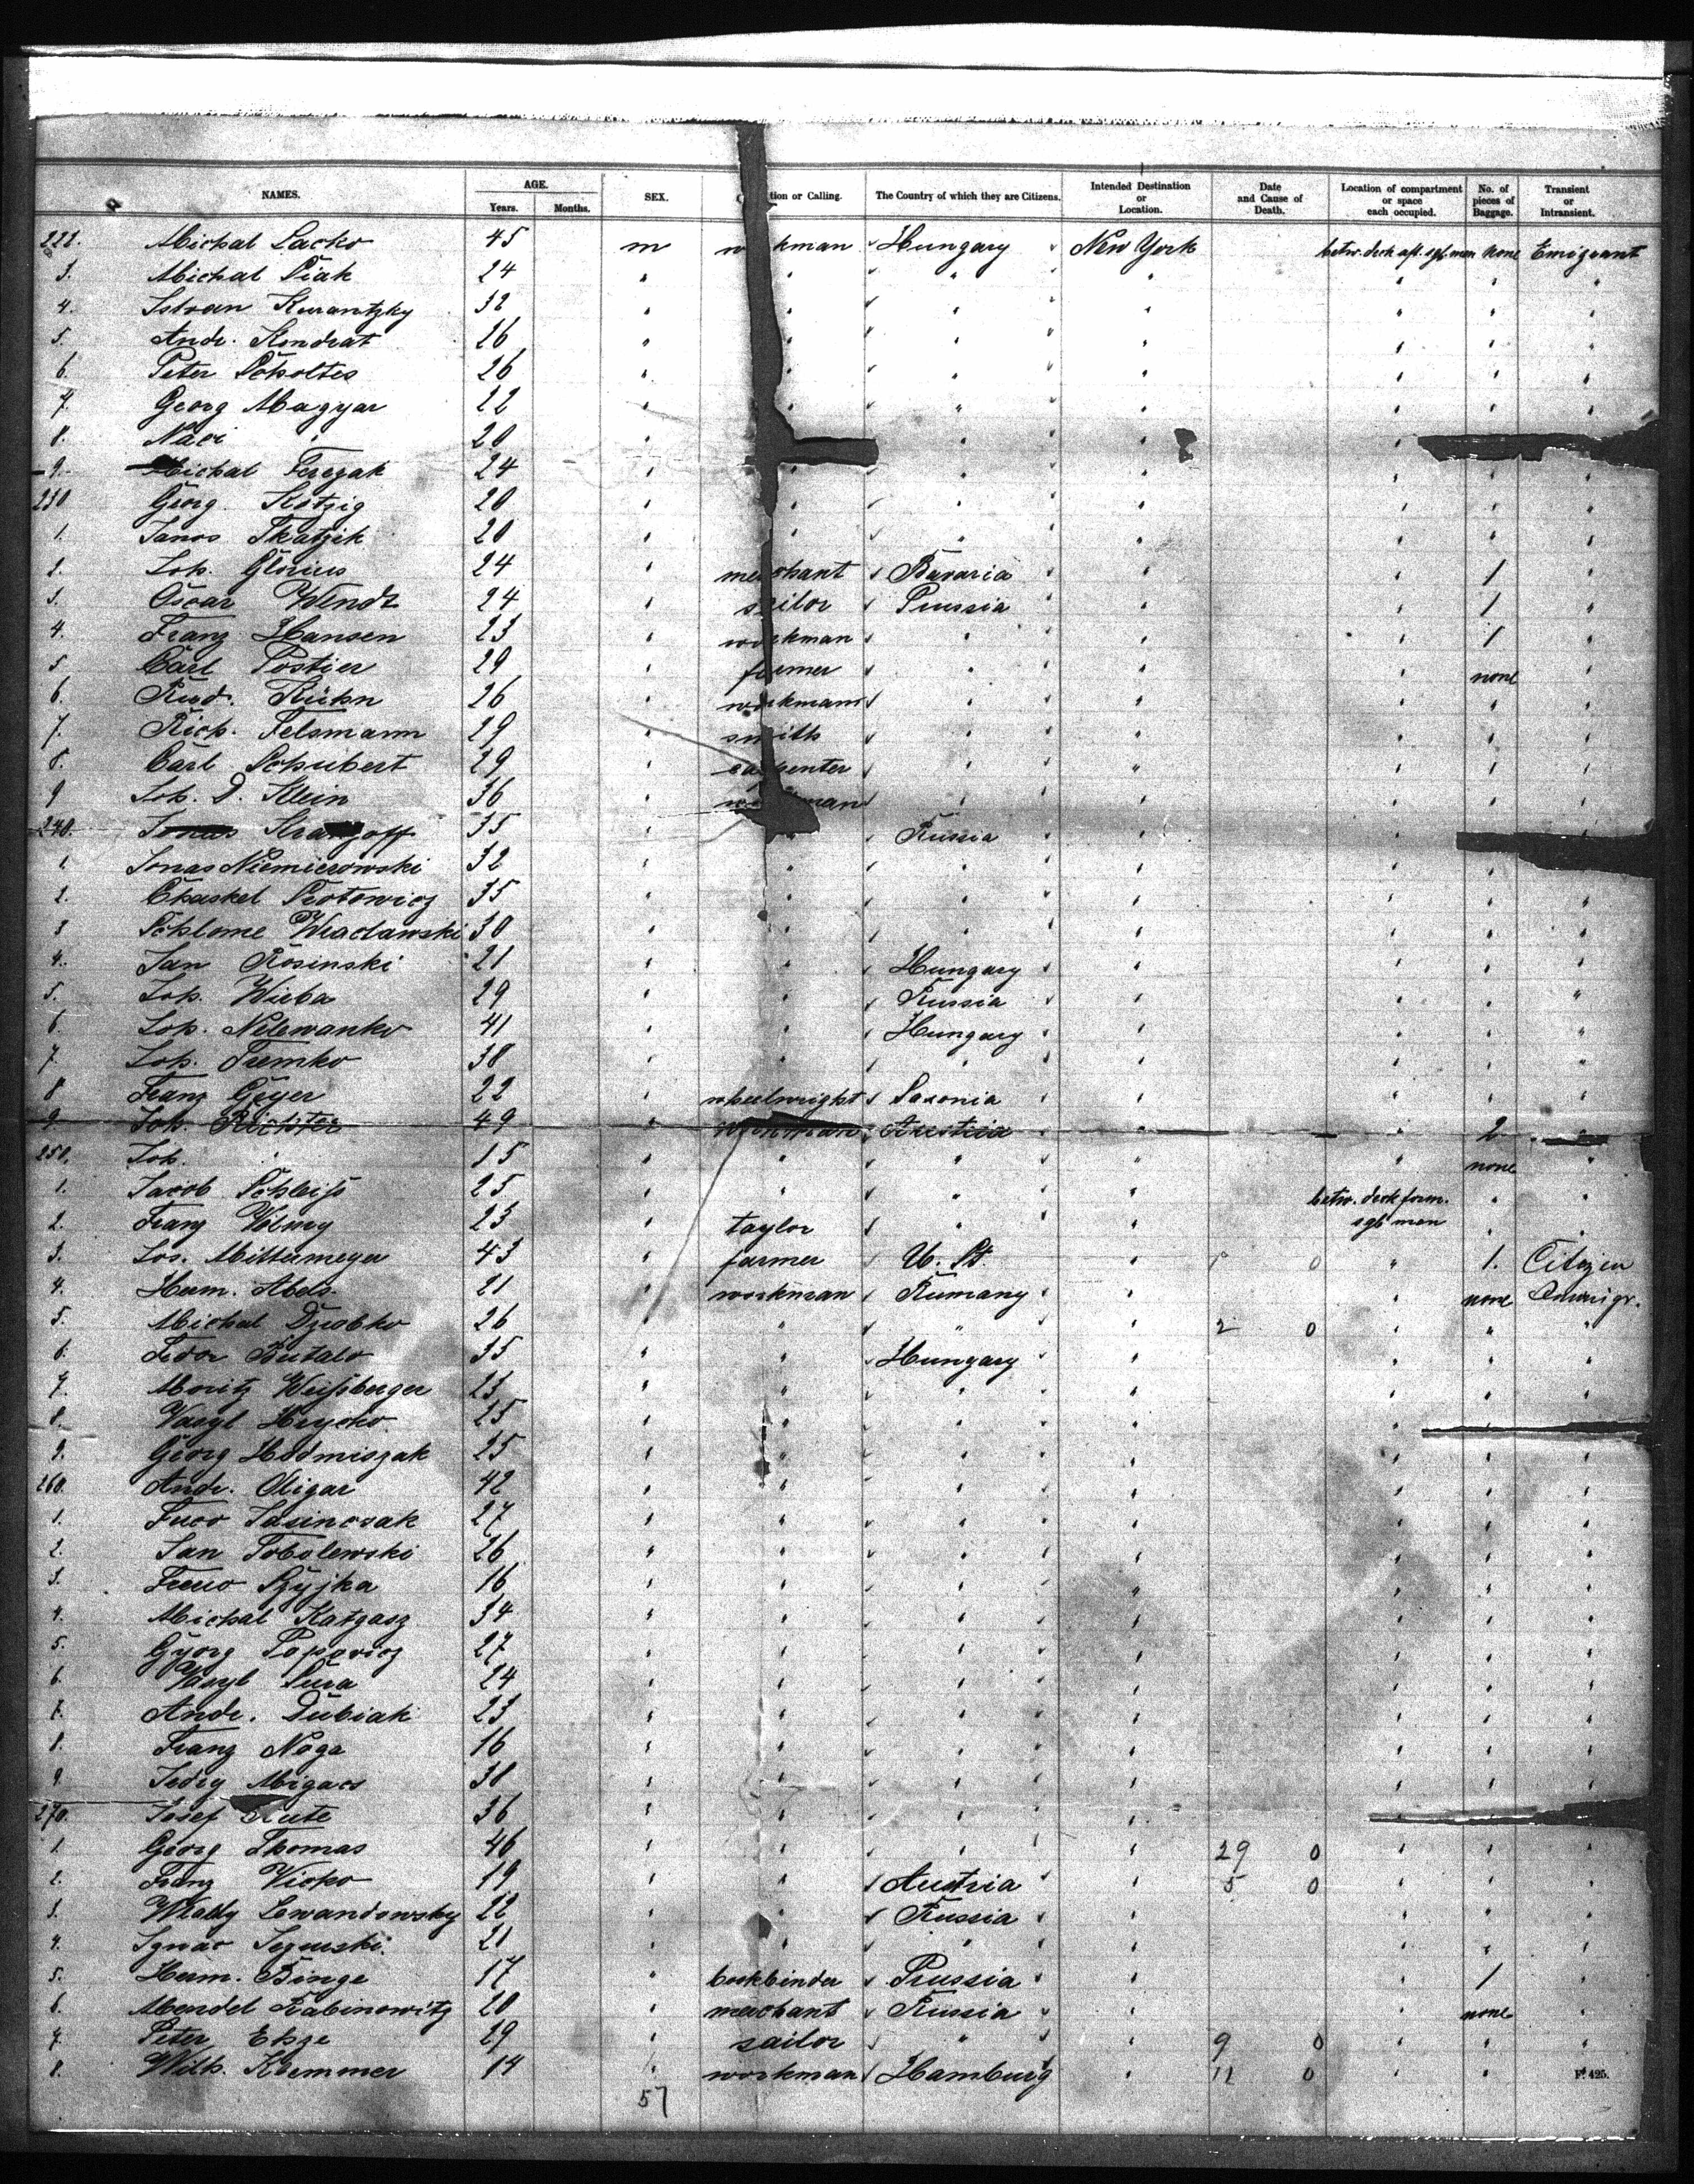 NAMES. AGE. Years. Months. SEX. tion or Calling. The Country of which they are Citizens. Intended Destination or Location. Date and Cause of Death. Location of compartment or space each occupied. No. of pieces of Baggage. Transient or Intransient.
222. Michal Lacko 45 m workman Hungary New York betw. deck aft. sgl. men none Emigrant
3. Michal 24 " " " " " " "
4. Istvan Kurantzky 32 " " " " " " "
5. Andr. Kondrat 26 " " " " " " "
6. Peter Scholtes 26 " " " " " " "
7. Georg Magyar 22 " " " " " " "
8. " 20 " " " "
9. Michal 24 " " " " " " "
230 Georg Kotzig 20 " " " " " " "
1. Janos Tkatzik 20 " " " " " " "
2. Joh. Glorius 24 " merchant Bavaria " " 1 "
3. Oscar Wendt 24 " sailor Prussia " " 1 "
4. Franz Hansen 23 " workman " " " 1 "
5. Carl Postier 29 " farmer " " " none "
6. Rud. Kühn 26 " workman " " " " "
7. Rich. Felsmann 29 " smith " " " " "
8. Carl Schubert 29 " carpenter " " " " "
9 Joh. D. Klein 36 " workman " " " " "
240. 35 " " Russia " "
1. Jonas Niemierowski 32 " " " " " " "
2. Chaskel 35 " " " " " " "
3 Schlome Wraclawski 30 " " " " " " "
4. Jan Rosinski 21 " " Hungary " " " "
5. Joh. Wirba 29 " " Russia " " " "
6. Joh. Nelewanko 41 " " Hungary " " " "
7. Joh. Fremko 38 " " " " " " "
8 Franz Geyer 22 " wheelwright Saxonia " " " "
9. Joh. Richter 49 " workman Austria " " 2 "
250. Joh. " 15 " " " " " none "
1. Jacob Schleiss 25 " " " " betw. deck forw. sgl. men " "
2. Franz 23 " taylor " " " "
3. Jos. Mittermeyer 43 " farmer U. St. " 0 " 1. Citizen
4. Herm. Abels. 21 " workman Rumany " " none
5. Michal Dzubko 26 " " " " 2 0 " " "
6. Fedor Butalo 35 " " Hungary " " " "
7. Moritz Weissberger 23 " " " " " " "
8. Vasyl Hrycko 25 " " " " " "
9. Georg Hodmiszak 25 " " " " " " "
260. Andr. Oligar 42 " " " " " " "
1. 27 " " " " " " "
2. Jan Tobolewski 26 " " " " " " "
3. 16 " " " " " " "
4. Michal Katzasz 34 " " " " " " "
5. Györg Popovicz 27 " " " " " " "
6. Vasyl 24 " " " " " " "
7. Andr. Dubiak 23 " " " " " " "
8. Franz Noga 16 " " " " " " "
9. Migacs 38 " " " " " " "
270. Josef 36 " " " " " "
1. Georg Thomas 46 " " " " 29 0 " " "
2. Franz Wicko 19 " " Austria " 5 0 " " "
3. Lewandowsky 22 " " Russia " " " "
4. Ignac 21 " " " " " " "
5. Herm. Binge 17 " bookbinder Prussia " " 1 "
6. Mendel Rabinowitz 20 " merchant Russia " " none "
7. Peter 29 " sailor " " 9 0 " " "
8. Wilh. Klemmer 14 " workman Hamburg " 11 0 " "
57
F. 425.